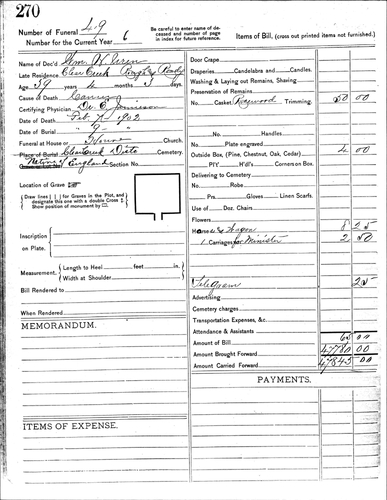 270
Number of Funeral 49
Number for the Current Year 6
Be careful to enter name of deceased and number of page in index for future reference.
Items of Bill, (cross out printed items not furnished.)
Name of Dec'd Wm.
Late Residence, Clear Creek
Age 39 years 4 months 3 days.
Cause of Death
Certifying Physician Dr. E. Jamison
Date of Death Feb. 7 - 1902
Date of Burial " 9 - "
Funeral at House or House Church.
Place of Burial Clear Creek Cemetery.
Native of England Section No.
Location of Grave
Draw lines | for Graves in the Plot, and designate this one with a double Cross
Show position of monument by
Inscription on Plate.
Measurement, Length to Heel feet in.
Width at Shoulder
Bill Rendered to
When Rendered
MEMORANDUM.
ITEMS OF EXPENSE.
Door Crape
Draperies Candelabra and Candles.
Washing & Laying out Remains, Shaving
Preservation of Remains
No. Casket Rosewood Trimming. 50 00
No. Handles
Plate engraved
Outside Box, (Pine, Chestnut, Oak, Cedar) 4 00
No. PIY H'd's Corners on Box.
Delivering to Cemetery
No. Robe
Prs. Gloves Linen Scarfs.
Use of Doz. Chairs
Flowers
Hearse & Wagon 8 25
1 Carriages for Minister 2 50
Telegram 25
Advertising
Cemetery charges
Transportation Expenses, &c.
Attendance & Assistants
Amount of Bill 65 00
Amount Brought Forward 47780 00
Amount Carried Forward 47845 00
PAYMENTS.